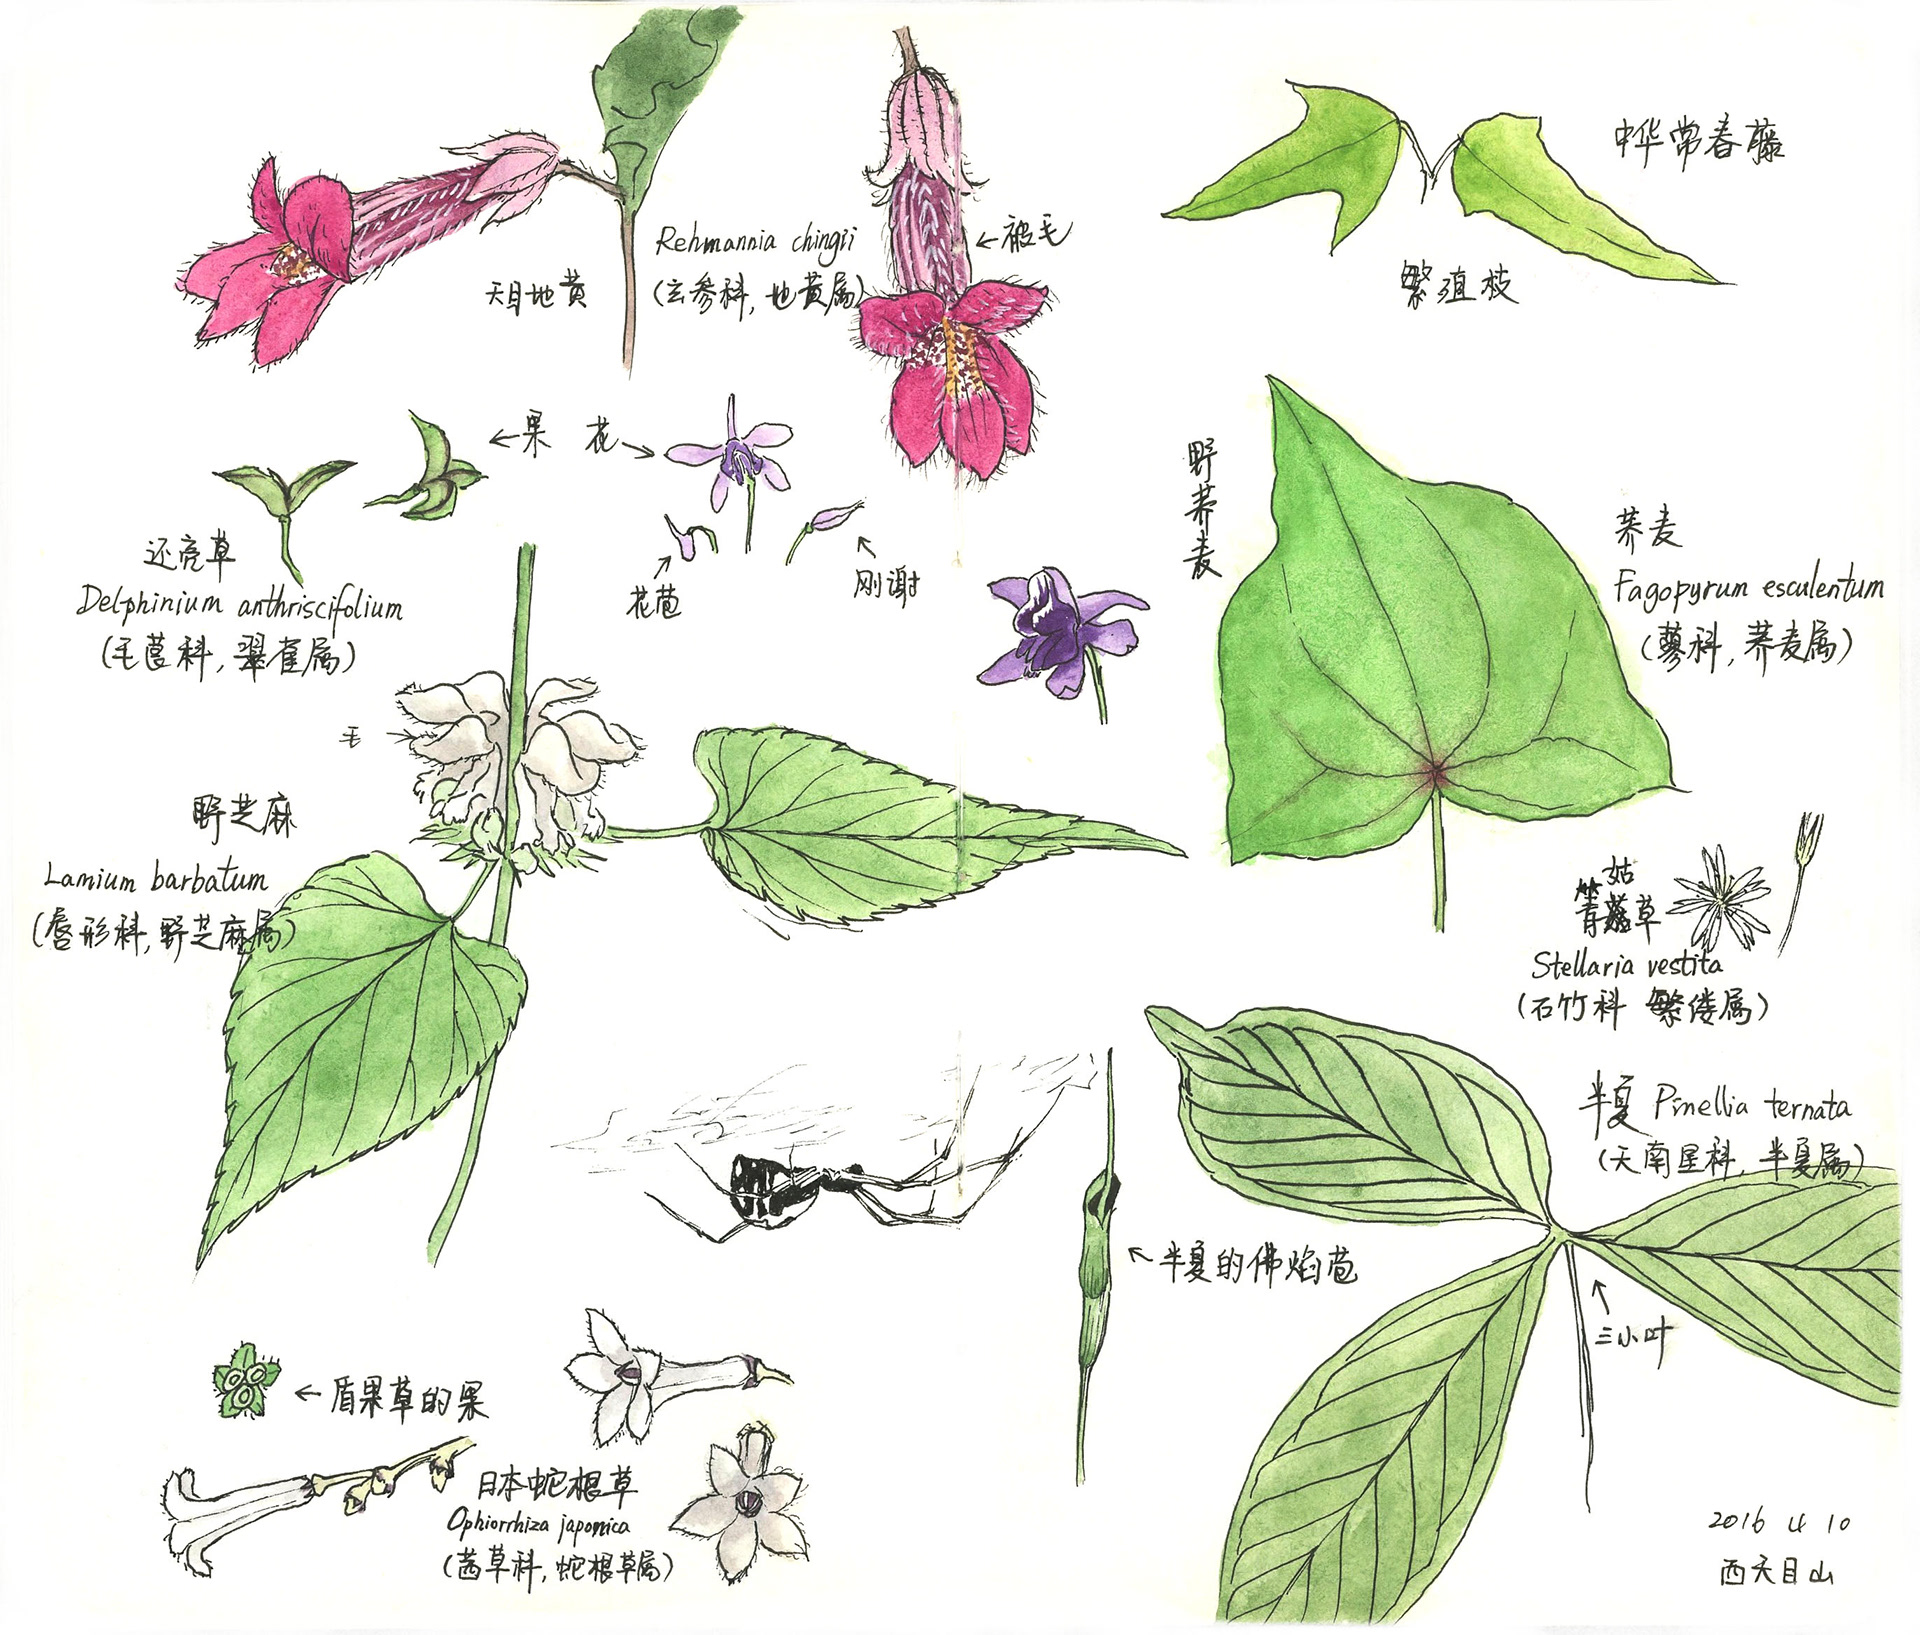 天目地黄
Rehmannia chingii
(玄参科, 地黄属)
←被毛
中华常春藤
繁殖枝
←果 花→
花苞
刚谢
还亮草
Delphinium anthriscifolium
(毛茛科, 翠雀属)
野荞麦
荞麦
Fagopyrum esculentum
(蓼科, 荞麦属)
毛
野芝麻
Lamium barbatum
(唇形科, 野芝麻属)
箐姑草
Stellaria vestita
(石竹科 繁缕属)
半夏 Pinellia ternata
(天南星科, 半夏属)
半夏的佛焰苞
三小叶
←盾果草的果
日本蛇根草
Ophiorrhiza japonica
(茜草科, 蛇根草属)
2016 4 10
西天目山